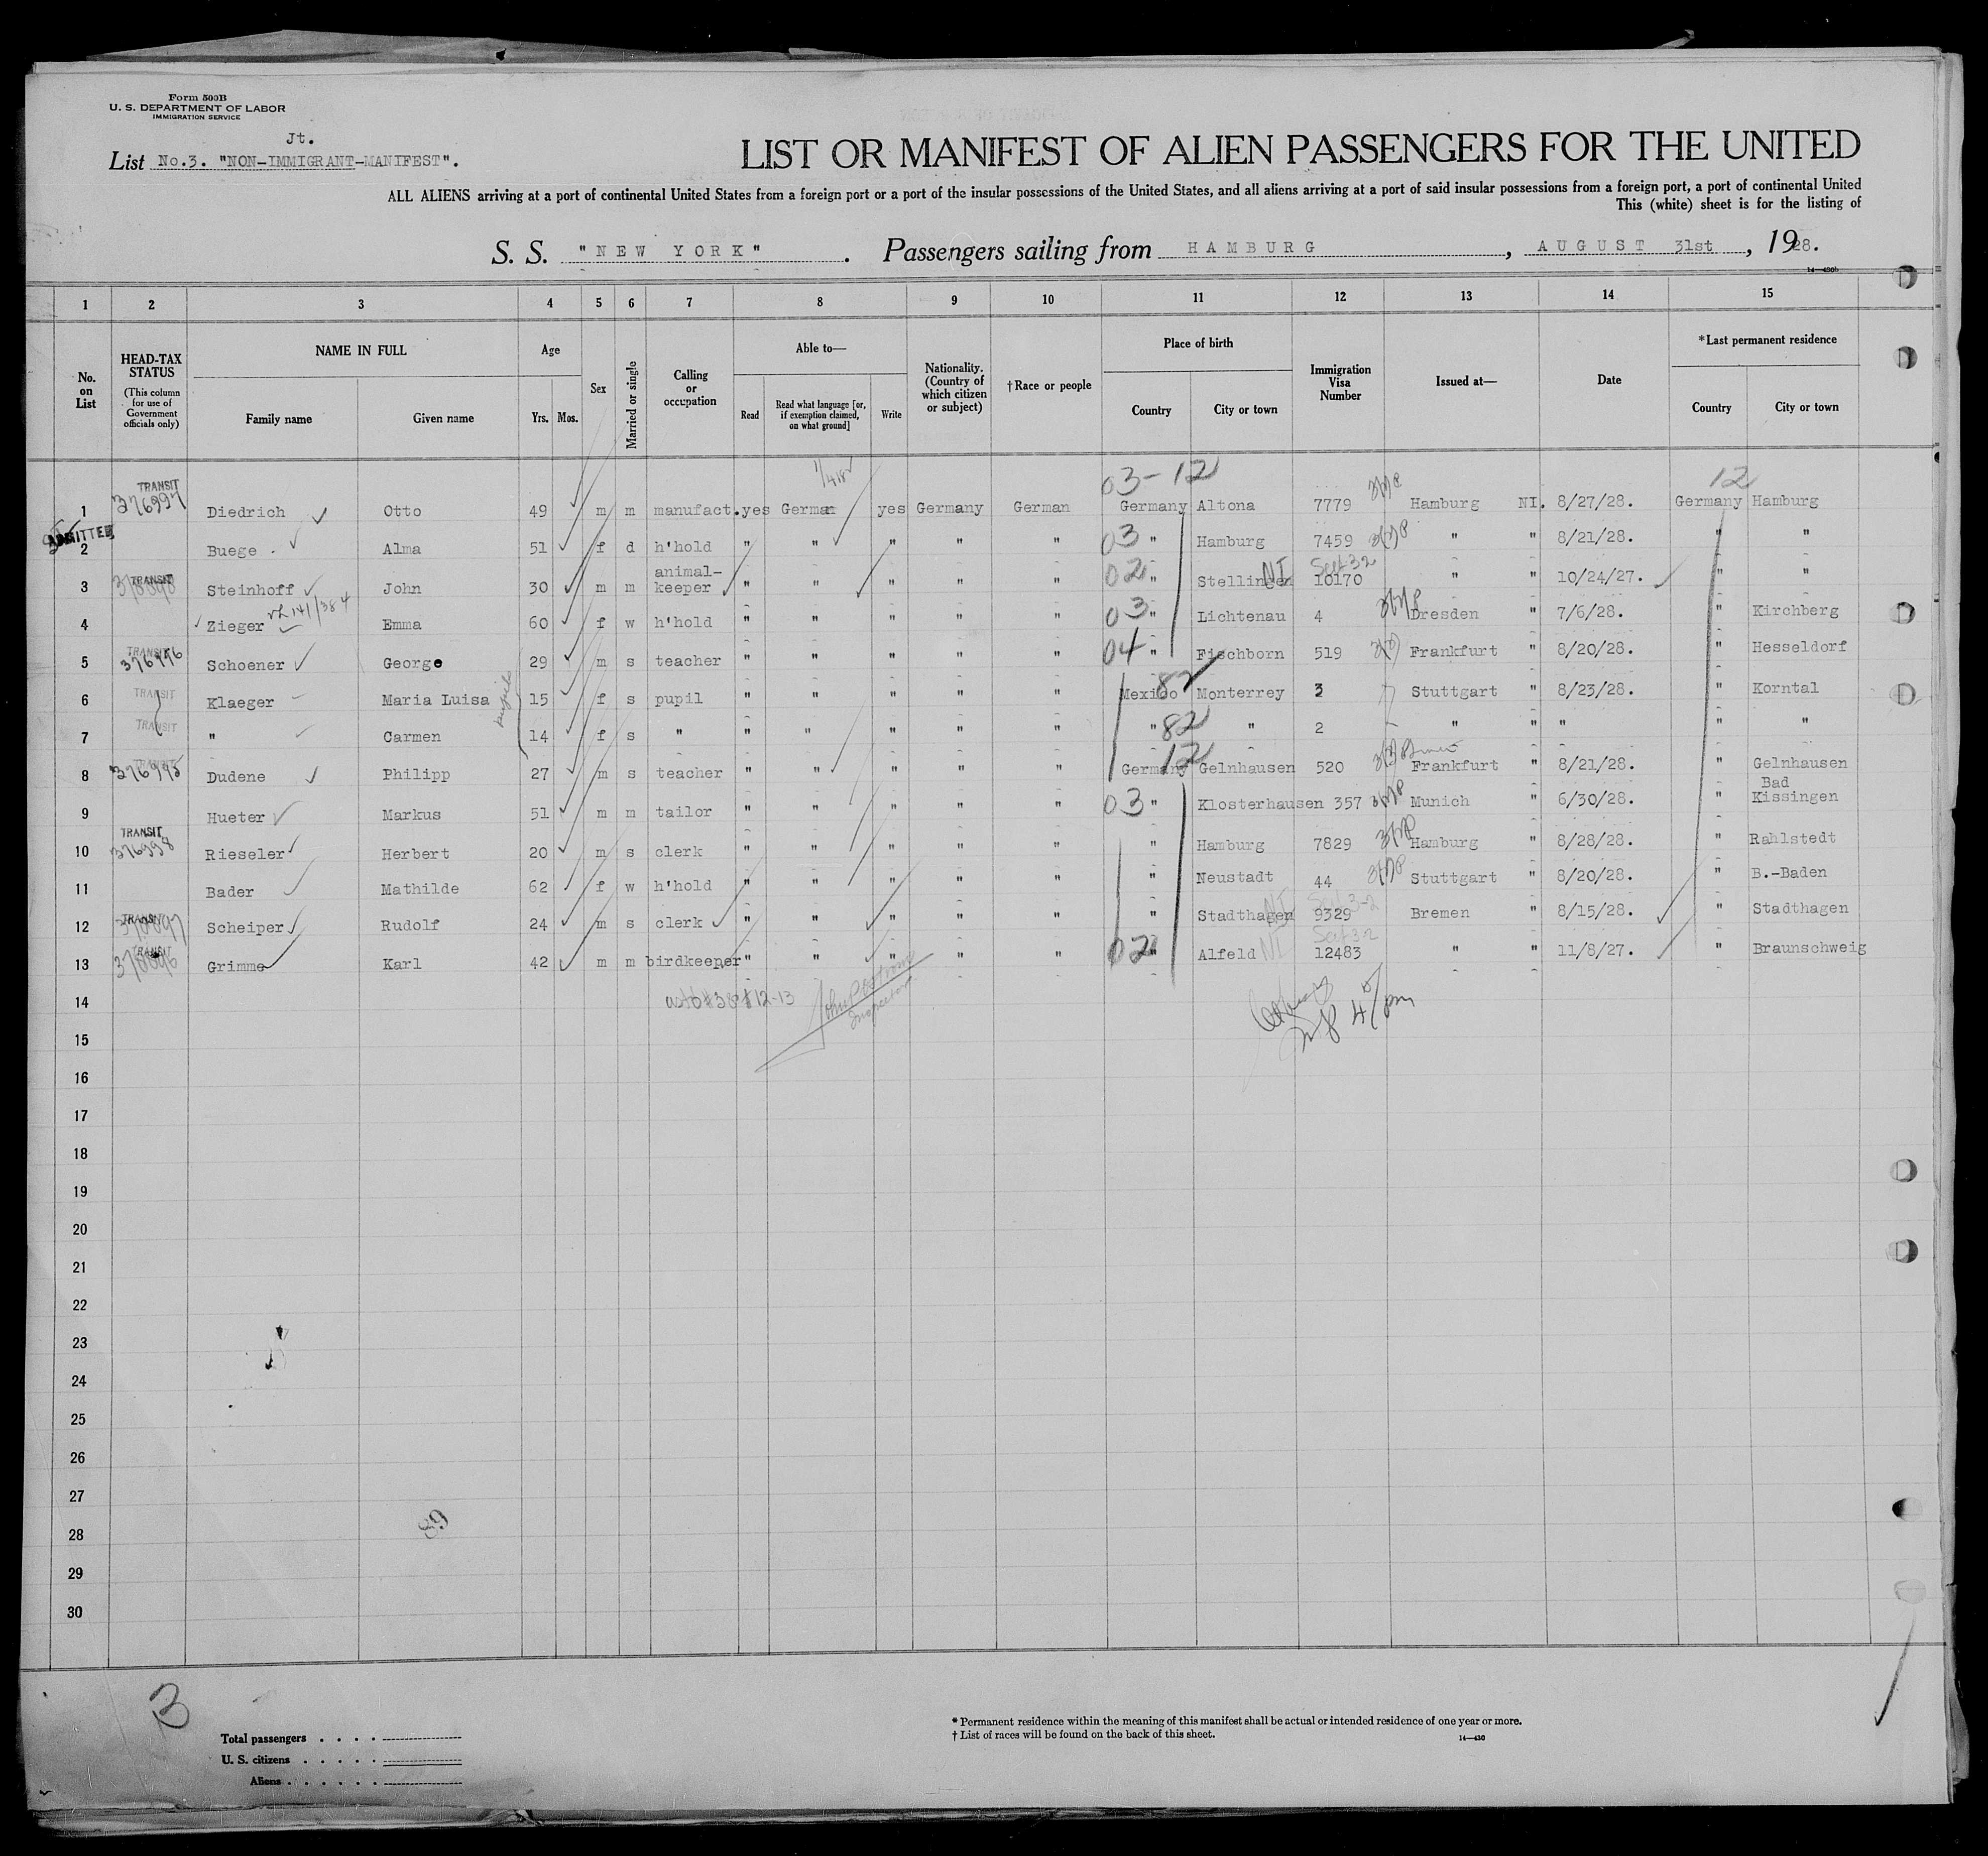 Form 500B
U. S. DEPARTMENT OF LABOR
IMMIGRATION SERVICE
Jt.
List No.3. "NON-IMMIGRANT-MANIFEST".
LIST OR MANIFEST OF ALIEN PASSENGERS FOR THE UNITED
ALL ALIENS arriving at a port of continental United States from a foreign port or a port of the insular possessions of the United States, and all aliens arriving at a port of said insular possessions from a foreign port, a port of continental United
This (white) sheet is for the listing of
S. S. "NEW YORK". Passengers sailing from HAMBURG, AUGUST 31st, 1928.
14—430b
1 2 3 4 5 6 7 8 9 10 11 12 13 14 15
No. on List
HEAD-TAX STATUS
(This column for use of Government officials only)
NAME IN FULL
Family name Given name
Age
Yrs. Mos.
Sex
Married or single
Calling or occupation
Able to—
Read
Read what language [or, if exemption claimed, on what ground]
Write
Nationality. (Country of which citizen or subject)
†Race or people
Place of birth
Country City or town
Immigration Visa Number
Issued at—
Date
*Last permanent residence
Country City or town
03-12 12
1 TRANSIT 376997 Diedrich Otto 49 m m manufact. yes German yes Germany German Germany Altona 7779 Hamburg NI. 8/27/28. Germany Hamburg
ADMITTED
2 Buege . Alma 51 f d h'hold " " " " " 03 " Hamburg 7459 " " 8/21/28. " "
3 TRANSIT Steinhoff John 30 m m animal-keeper " " " " " 02 " Stellingen NI 10170 " " 10/24/27. " "
4 Zieger Emma 60 f w h'hold " " " " " 03 " Lichtenau 4 Dresden " 7/6/28. " Kirchberg
5 TRANSIT 376996 Schoener George 29 m s teacher " " " " " 04 " Fischborn 519 Frankfurt " 8/20/28. " Hesseldorf
6 TRANSIT Klaeger Maria Luisa 15 f s pupil " " " " " Mexico 82 Monterrey 3 Stuttgart " 8/23/28. " Korntal
7 TRANSIT " Carmen 14 f s " " " " " " " 82 " 2 " " " " "
8 TRANSIT 376995 Dudene Philipp 27 m s teacher " " " " " Germany 12 Gelnhausen 520 Frankfurt " 8/21/28. " Gelnhausen
9 Hueter Markus 51 m m tailor " " " " " 03 " Klosterhausen 357 Munich " 6/30/28. " Bad Kissingen
10 TRANSIT 376998 Rieseler Herbert 20 m s clerk " " " " " " Hamburg 7829 Hamburg " 8/28/28. " Rahlstedt
11 Bader Mathilde 62 f w h'hold " " " " " " Neustadt 44 Stuttgart " 8/20/28. " B.-Baden
12 TRANSIT Scheiper Rudolf 24 m s clerk " " " " " " Stadthagen NI 9329 Bremen " 8/15/28. " Stadthagen
13 TRANSIT Grimme Karl 42 m m birdkeeper " " " " " 02 " Alfeld NI 12483 " " 11/8/27. " Braunschweig
14
15
16
17
18
19
20
21
22
23
24
25
26
27
28
29
30
3
Total passengers
U. S. citizens
Aliens
* Permanent residence within the meaning of this manifest shall be actual or intended residence of one year or more.
† List of races will be found on the back of this sheet.
14—430